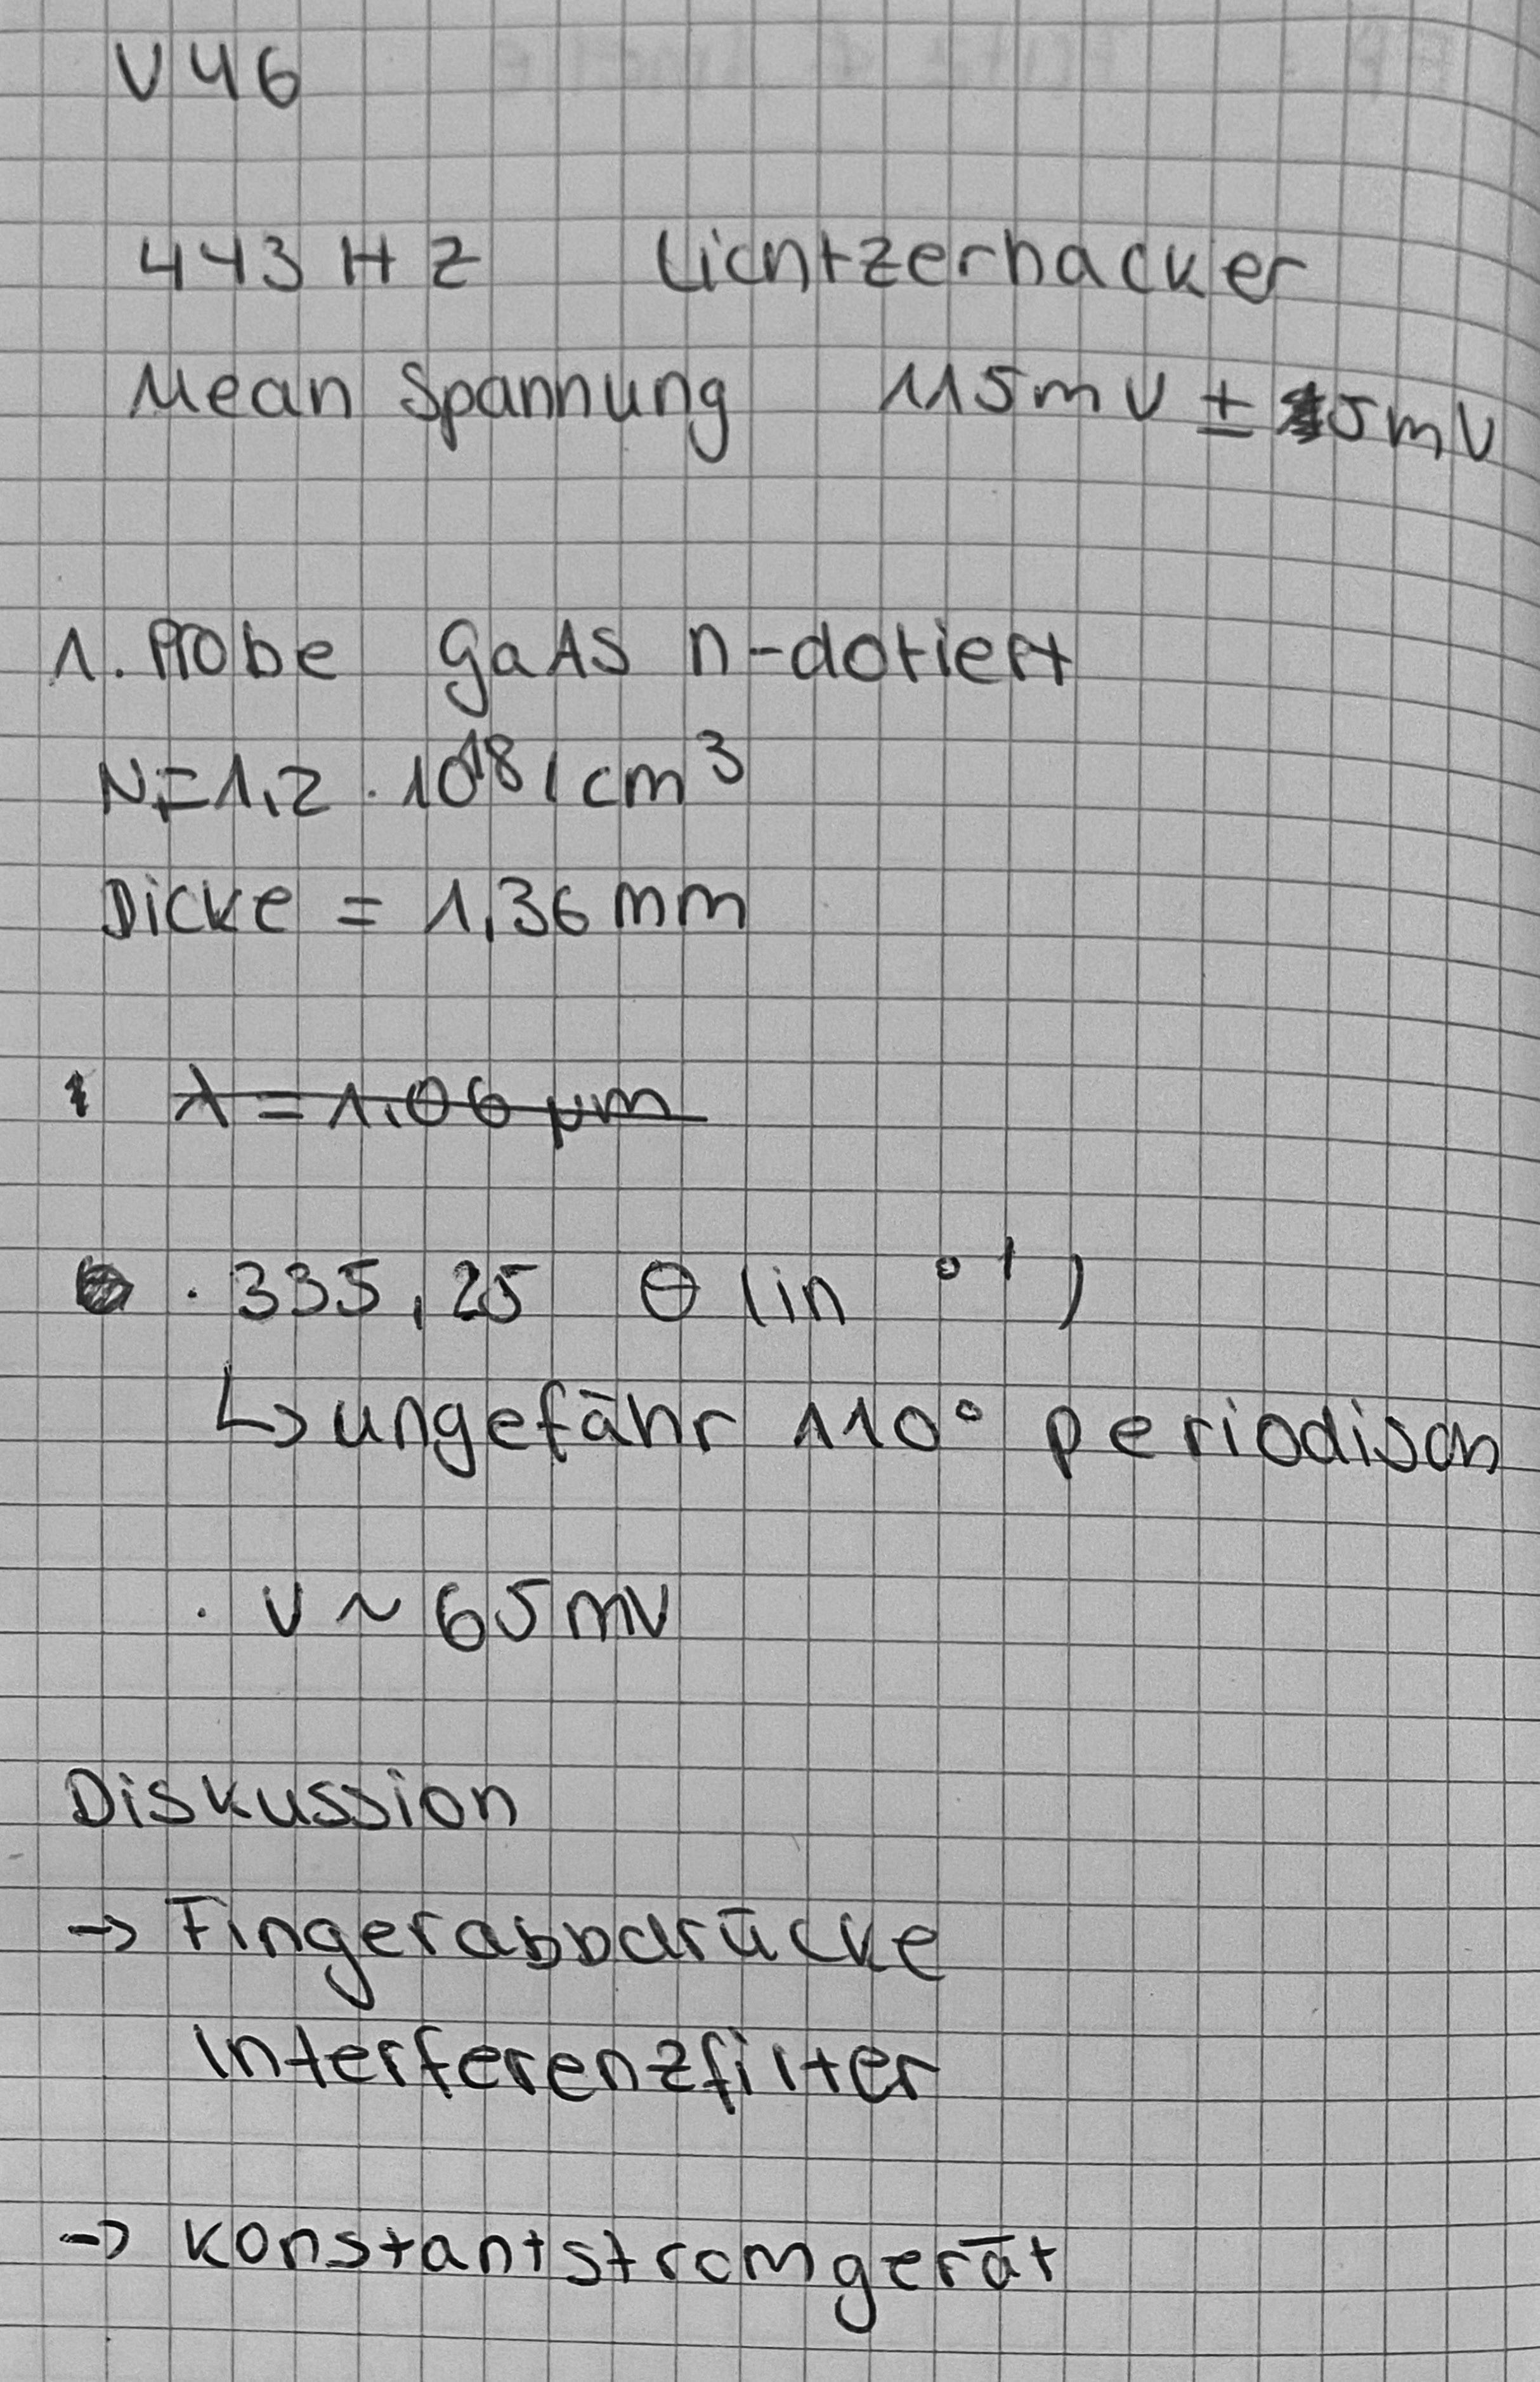 V46
443 HZ Lichtzerhacker
Mean Spannung 115mV ± 5mV
1. Probe GaAs n-dotiert
N=1,2 · 10^18 / cm^3
Dicke = 1,36 mm
λ = 1,06 μm
· 335,25 Θ (in ° ' )
↳ ungefähr 110° periodisch
· V ~ 65mV
Diskussion
→ Fingerabbdrücke
Interferenzfilter
→ Konstantstromgerät